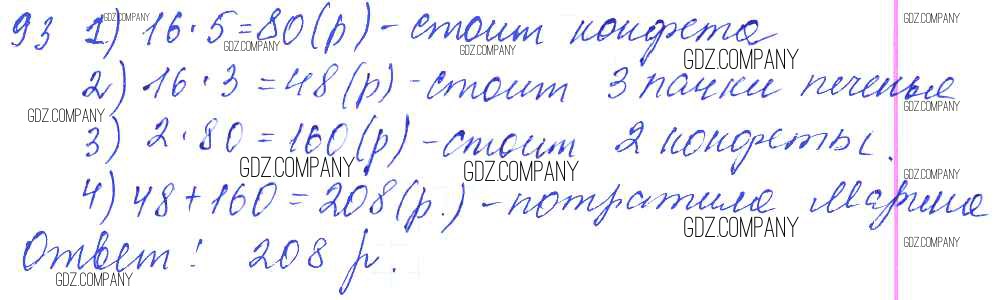 93 1) 16·5=80(р)-стоит конфета
2) 16·3=48(р)-стоит 3 пачки печенья
3) 2·80=160(р)-стоит 2 конфеты.
4) 48+160=208(р.)-потратила Марина
Ответ: 208 р.
GDZ.COMPANY
GDZ.COMPANY
GDZ.COMPANY
GDZ.COMPANY
GDZ.COMPANY
GDZ.COMPANY
GDZ.COMPANY
GDZ.COMPANY
GDZ.COMPANY
GDZ.COMPANY
GDZ.COMPANY
GDZ.COMPANY
GDZ.COMPANY
GDZ.COMPANY